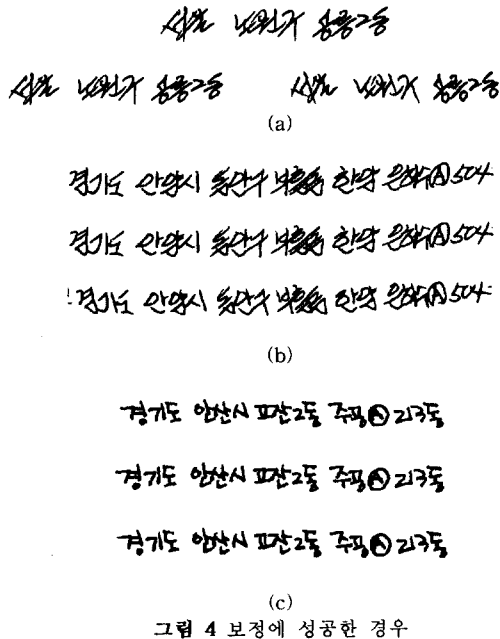 서울 노원구 공릉2동
서울 노원구 공릉2동 서울 노원구 공릉2동
(a)
경기도 안양시 동안구 부흥동 한양 은하수Ⓐ504
경기도 안양시 동안구 부흥동 한양 은하수Ⓐ504
경기도 안양시 동안구 부흥동 한양 은하수Ⓐ504
(b)
경기도 안산시 고잔2동 주공Ⓐ 213동
경기도 안산시 고잔2동 주공Ⓐ 213동
경기도 안산시 고잔2동 주공Ⓐ 213동
(c)
그림 4 보정에 성공한 경우